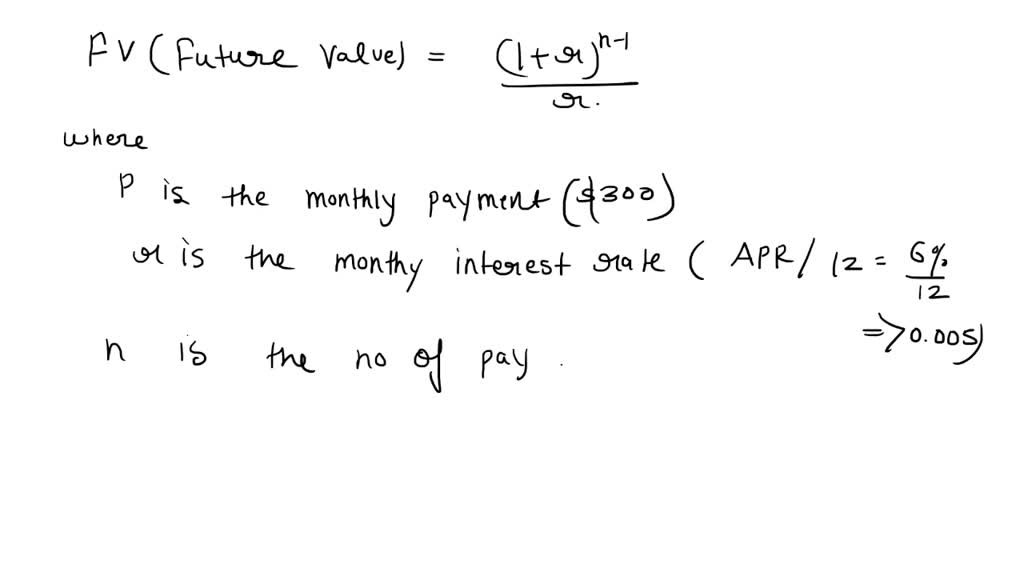 FV (Future Value) = (1+r)^{n-1} / r.
where
P is the monthly payment ($300)
r is the monthy interest rate ( APR / 12 = 6% / 12
=> 0.005)
n is the no of pay .